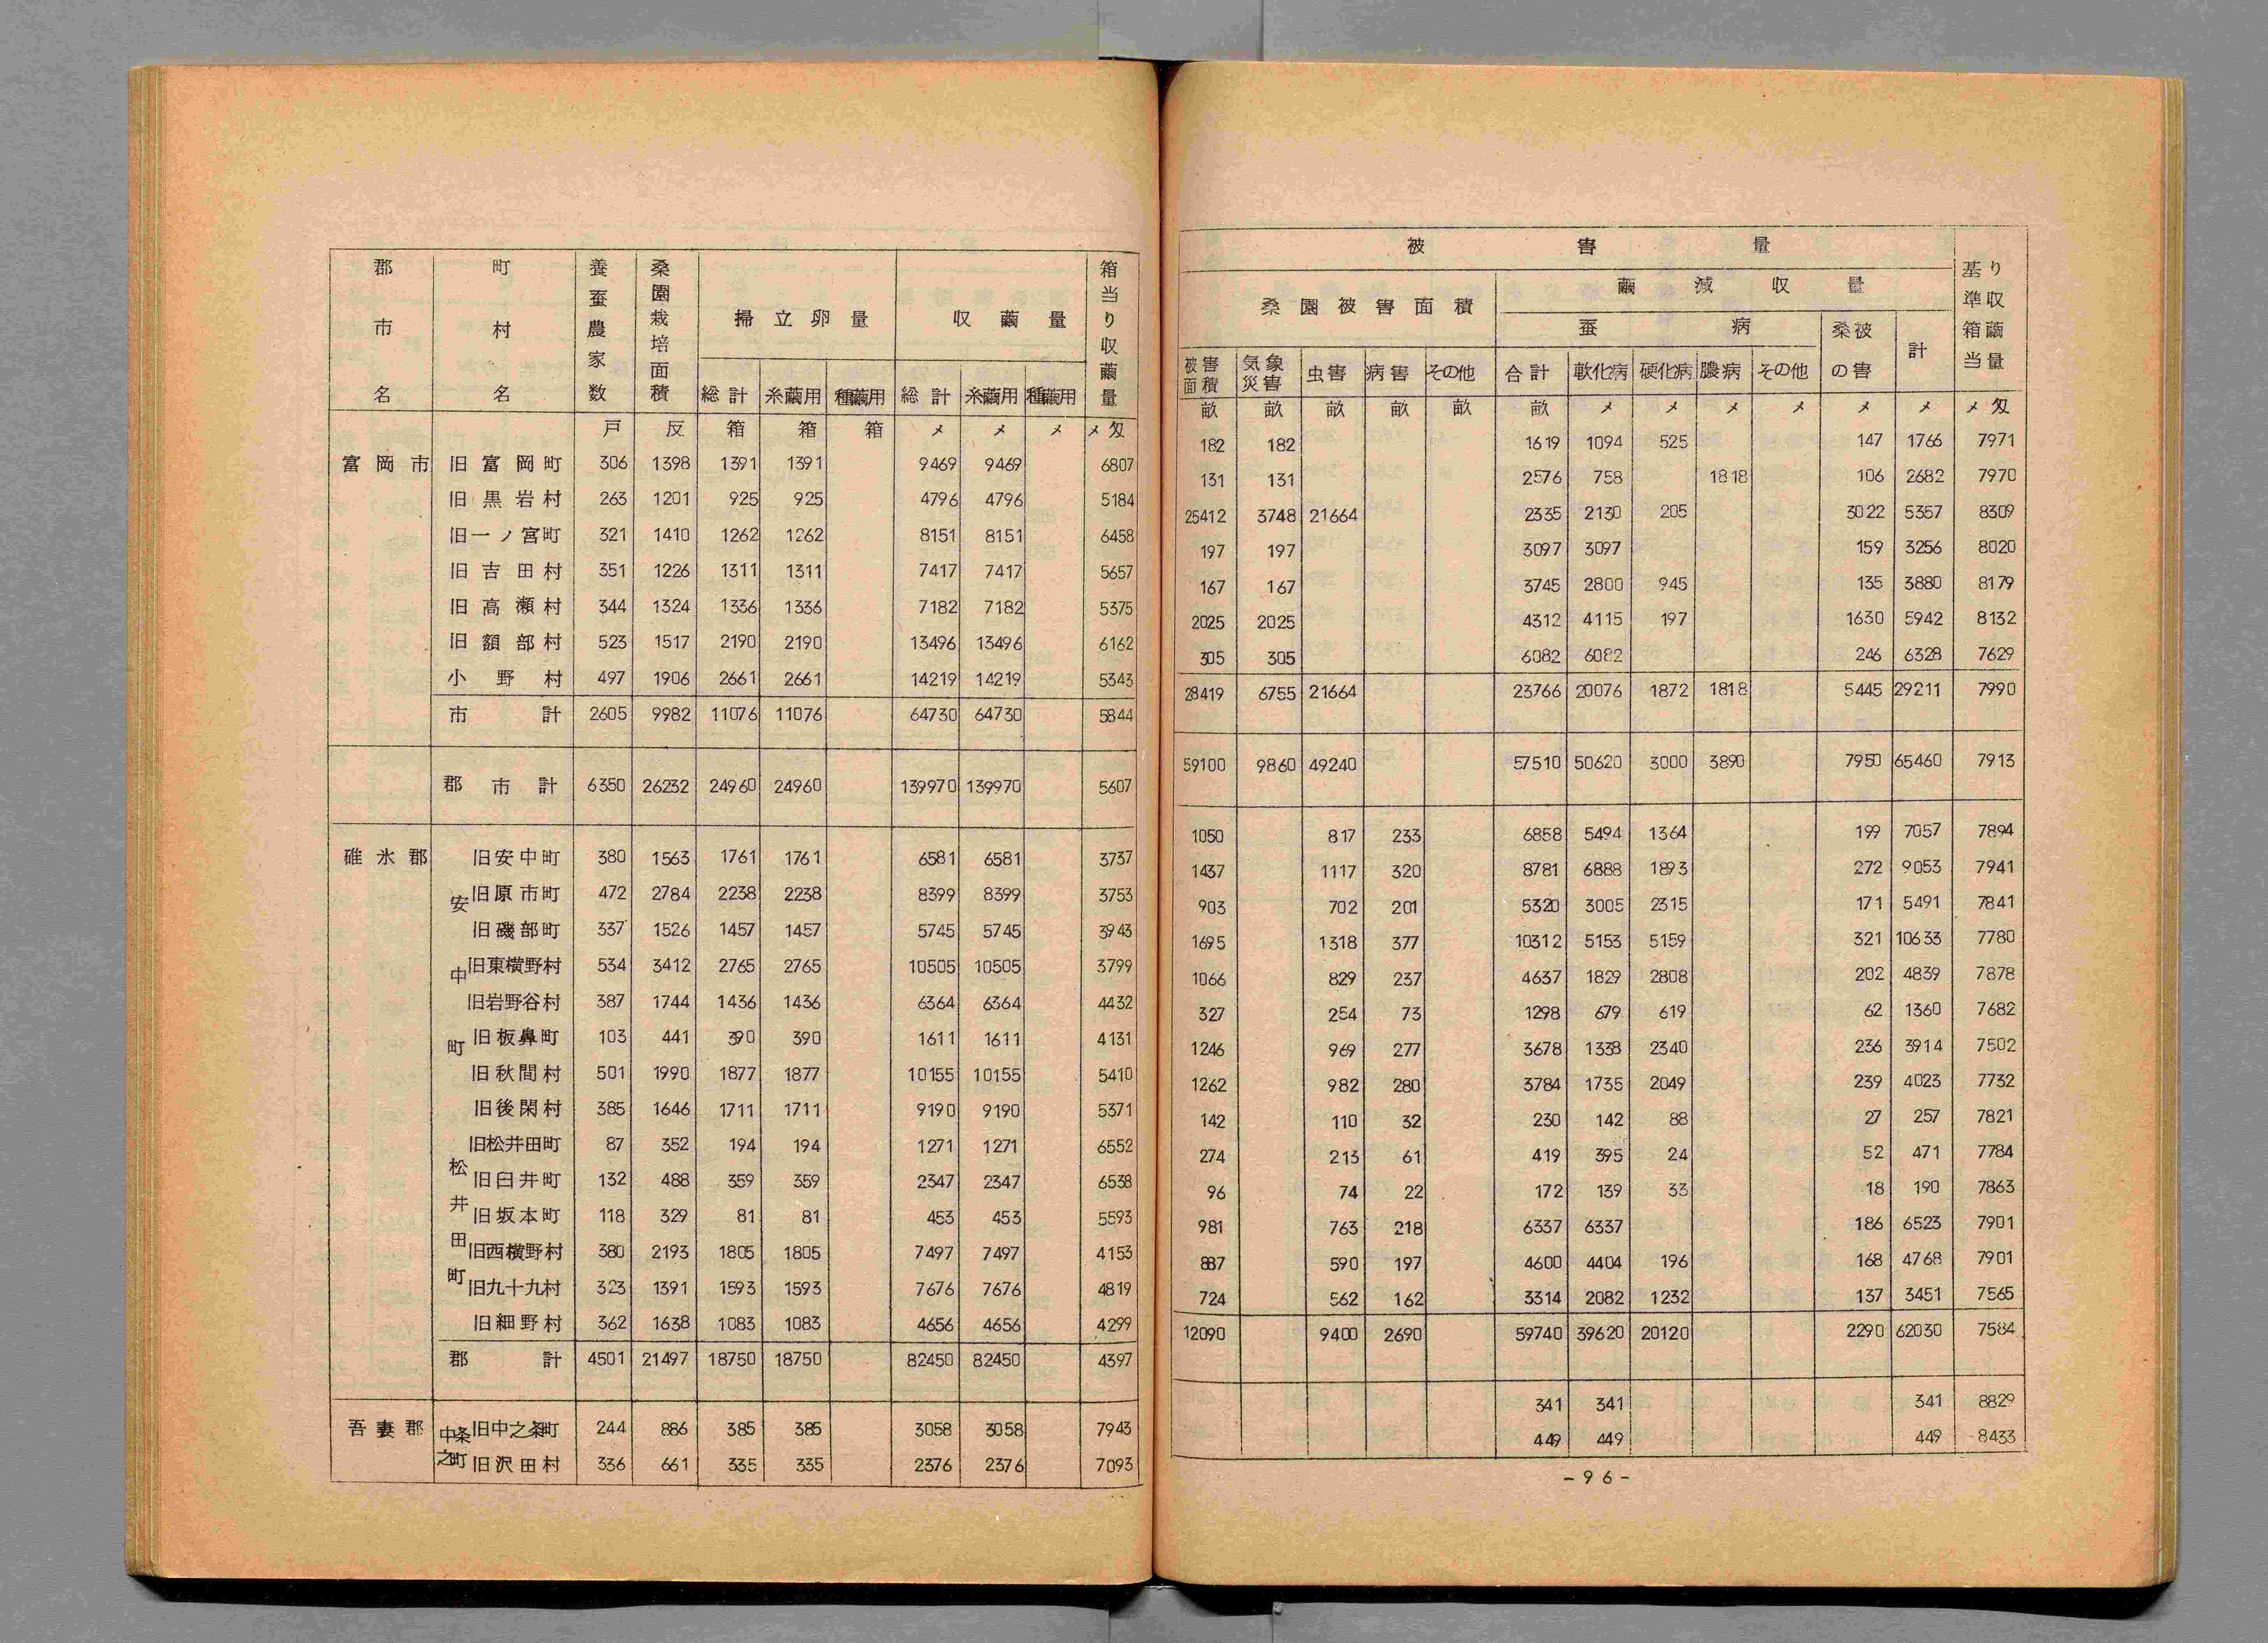 郡市名 町村名 養蚕農家数 桑園栽培面積 掃立卵量 収繭量 箱当り収繭量
総計 糸繭用 種繭用 総計 糸繭用 種繭用
戸 反 箱 箱 箱 メ メ メ メ匁
富岡市 旧富岡町 306 1398 1391 1391 9469 9469 6807
旧黒岩村 263 1201 925 925 4796 4796 5184
旧一ノ宮町 321 1410 1262 1262 8151 8151 6458
旧吉田村 351 1226 1311 1311 7417 7417 5657
旧高瀬村 344 1324 1336 1336 7182 7182 5375
旧額部村 523 1517 2190 2190 13496 13496 6162
小野村 497 1906 2661 2661 14219 14219 5343
市計 2605 9982 11076 11076 64730 64730 5844
郡市計 6350 26232 24960 24960 139970 139970 5607
碓氷郡 安中町 旧安中町 380 1563 1761 1761 6581 6581 3737
旧原市町 472 2784 2238 2238 8399 8399 3753
旧磯部町 337 1526 1457 1457 5745 5745 3943
旧東横野村 534 3412 2765 2765 10505 10505 3799
旧岩野谷村 387 1744 1436 1436 6364 6364 4432
旧板鼻町 103 441 390 390 1611 1611 4131
旧秋間村 501 1990 1877 1877 10155 10155 5410
旧後閑村 385 1646 1711 1711 9190 9190 5371
松井田町 旧松井田町 87 352 194 194 1271 1271 6552
旧臼井町 132 488 359 359 2347 2347 6538
旧坂本町 118 329 81 81 453 453 5593
旧西横野村 380 2193 1805 1805 7497 7497 4153
旧九十九村 323 1391 1593 1593 7676 7676 4819
旧細野村 362 1638 1083 1083 4656 4656 4299
郡計 4501 21497 18750 18750 82450 82450 4397
吾妻郡 中之条町 旧中之条町 244 886 385 385 3058 3058 7943
旧沢田村 336 661 335 335 2376 2376 7093
被害量 基準箱当り収繭量
桑園被害面積 繭減収量
蚕病 桑被の害 計
被害面積 気象災害 虫害 病害 その他 合計 軟化病 硬化病 膿病 その他
畝 畝 畝 畝 畝 畝 メ メ メ メ メ メ メ匁
182 182 1619 1094 525 147 1766 7971
131 131 2576 758 1818 106 2682 7970
25412 3748 21664 2335 2130 205 3022 5357 8309
197 197 3097 3097 159 3256 8020
167 167 3745 2800 945 135 3880 8179
2025 2025 4312 4115 197 1630 5942 8132
305 305 6082 6082 246 6328 7629
28419 6755 21664 23766 20076 1872 1818 5445 29211 7990
59100 9860 49240 57510 50620 3000 3890 7950 65460 7913
1050 817 233 6858 5494 1364 199 7057 7894
1437 1117 320 8781 6888 1893 272 9053 7941
903 702 201 5320 3005 2315 171 5491 7841
1695 1318 377 10312 5153 5159 321 10633 7780
1066 829 237 4637 1829 2808 202 4839 7878
327 254 73 1298 679 619 62 1360 7682
1246 969 277 3678 1338 2340 236 3914 7502
1262 982 280 3784 1735 2049 239 4023 7732
142 110 32 230 142 88 27 257 7821
274 213 61 419 395 24 52 471 7784
96 74 22 172 139 33 18 190 7863
981 763 218 6337 6337 186 6523 7901
887 590 197 4600 4404 196 168 4768 7901
724 562 162 3314 2082 1232 137 3451 7565
12090 9400 2690 59740 39620 20120 2290 62030 7584
341 341 341 8829
449 449 449 8433
-96-